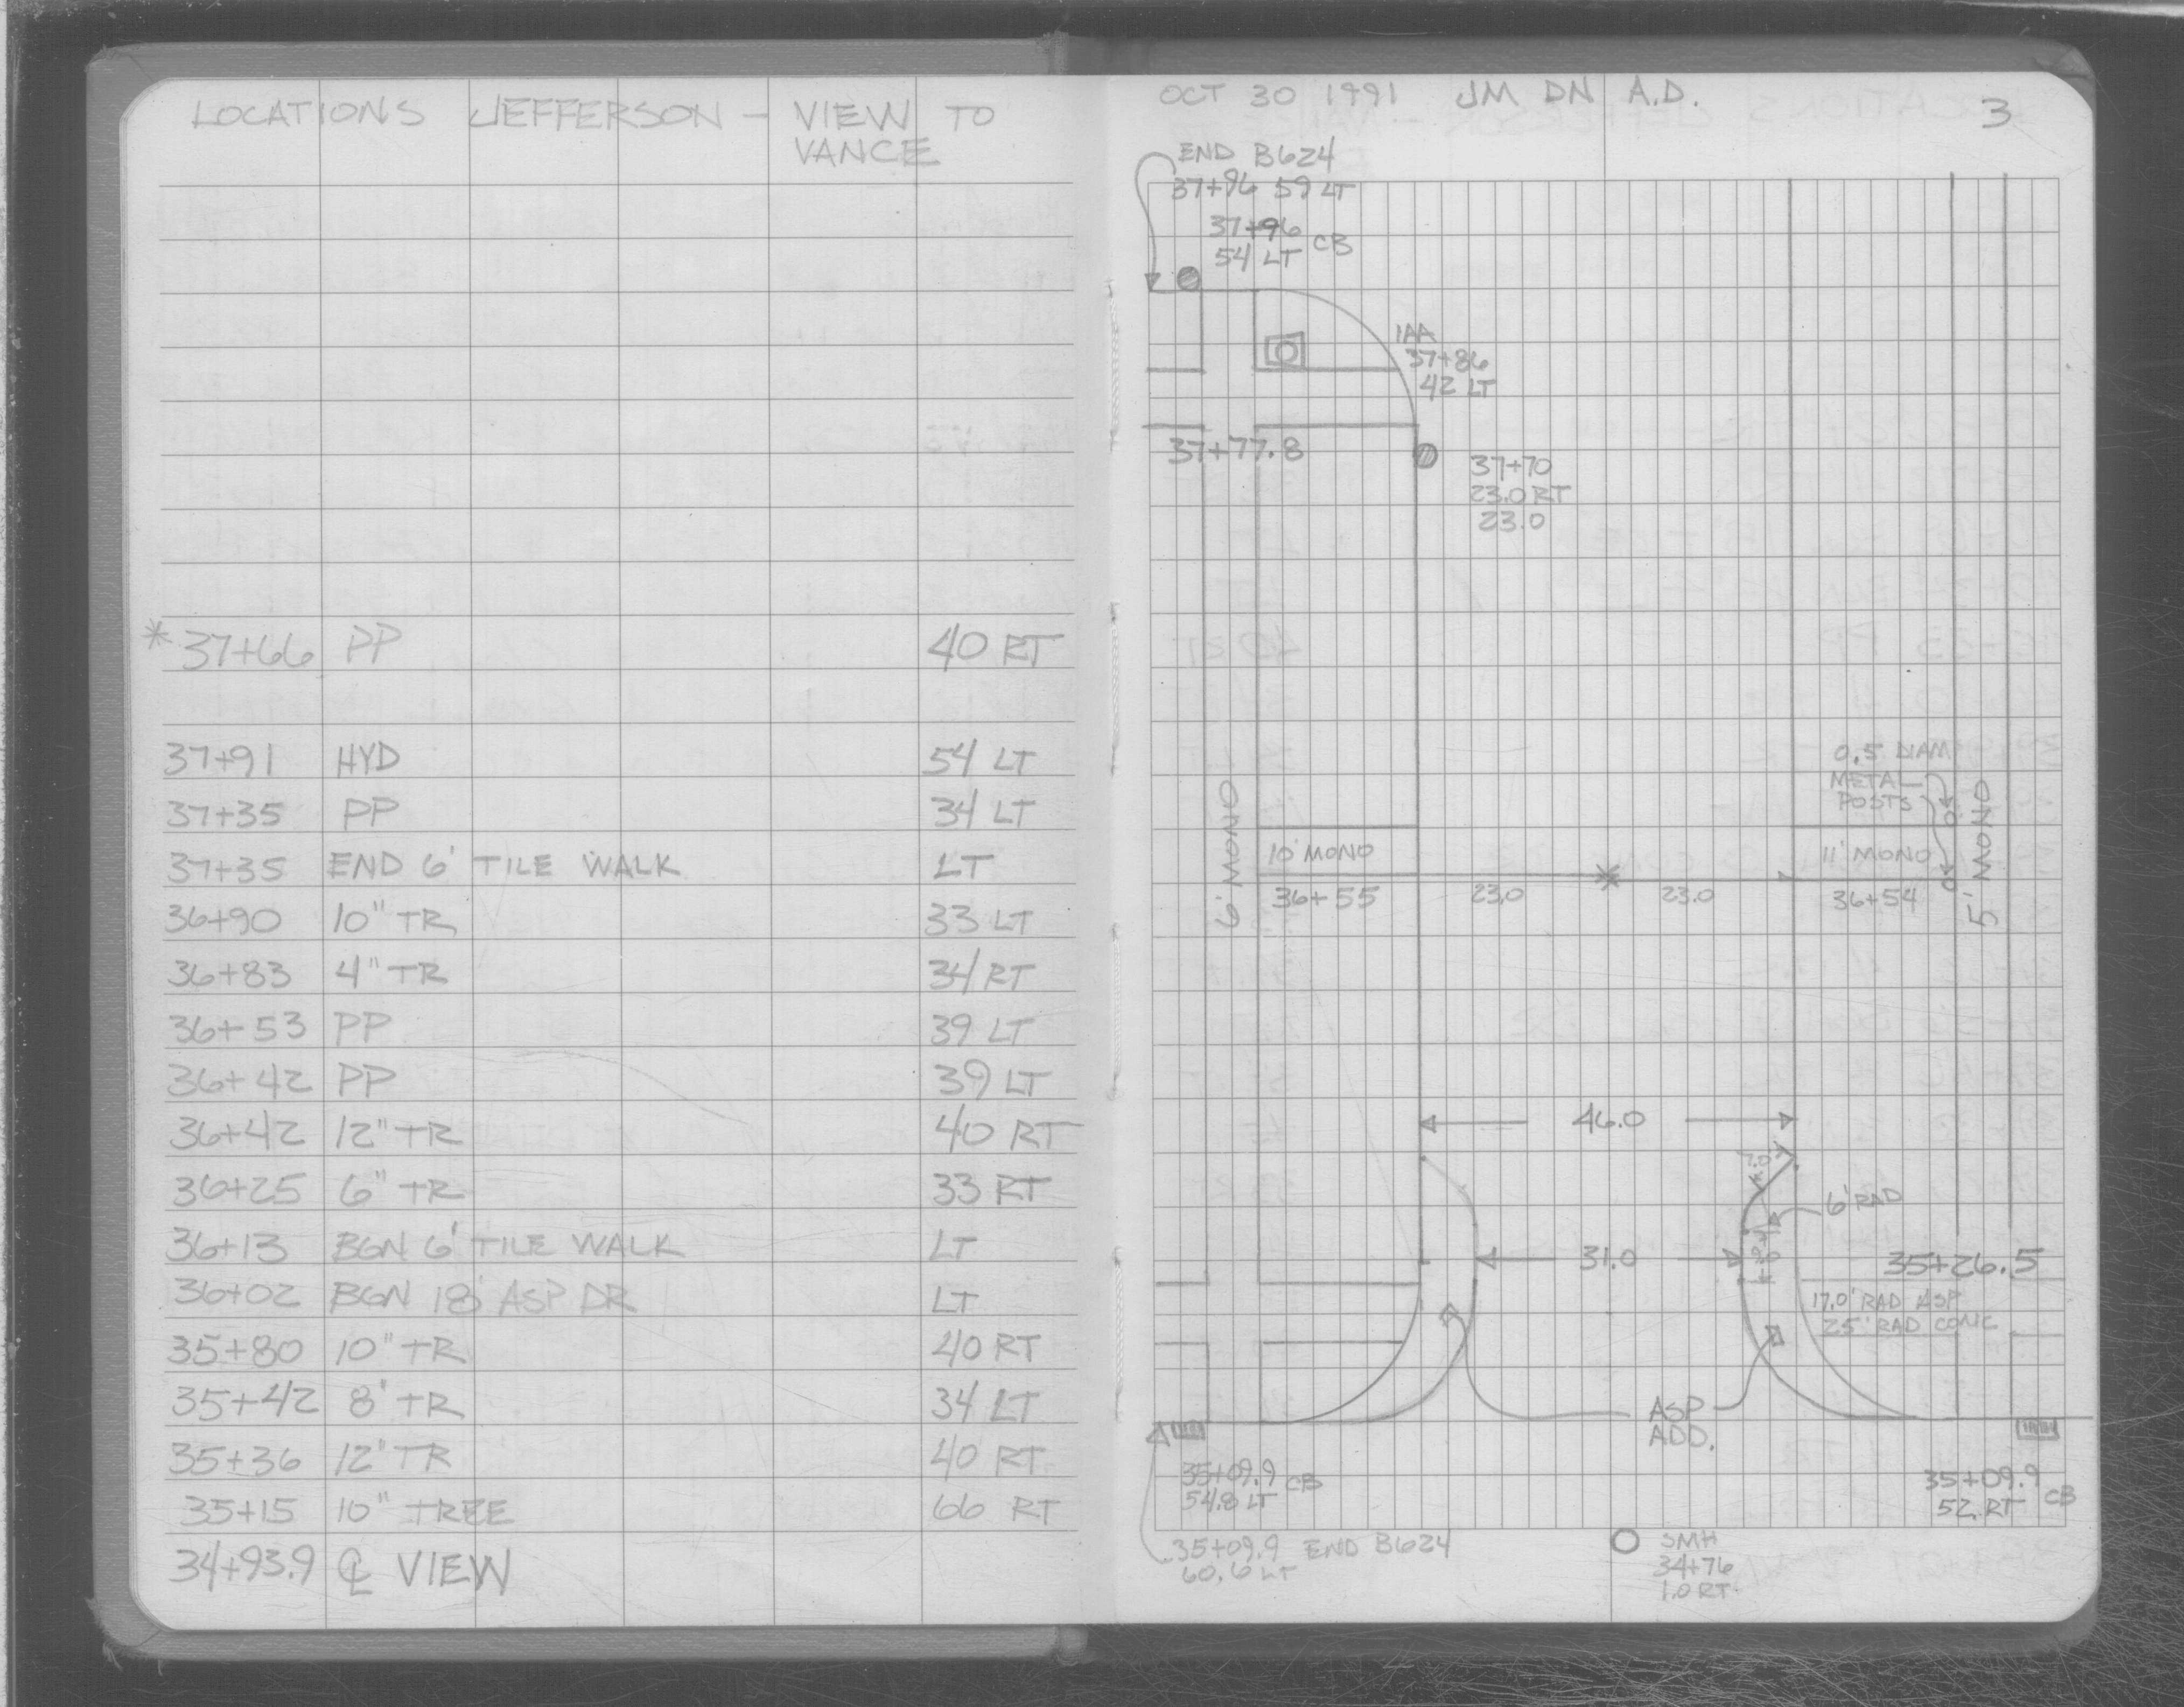 LOCATIONS JEFFERSON - VIEW TO
VANCE
* 37+66 PP 40 RT
37+91 HYD 54 LT
37+35 PP 34 LT
37+35 END 6' TILE WALK LT
36+90 10" TR 33 LT
36+83 4" TR 34 RT
36+53 PP 39 LT
36+42 PP 39 LT
36+42 12" TR 40 RT
36+25 6" TR 33 RT
36+13 BGN 6' TILE WALK LT
36+02 BGN 18' ASP DR LT
35+80 10" TR 40 RT
35+42 8' TR 34 LT
35+36 12" TR 40 RT
35+15 10" TREE 66 RT
34+93.9 ℄ VIEW
OCT 30 1991 JM DN A.D.
3
END B624
37+96 59 LT
37+96
54 LT CB
1AA
37+86
42 LT
37+77.8
37+70
23.0 RT
23.0
0.5 DIAM
METAL
POSTS
6' MONO
10' MONO
11' MONO
5' MONO
36+55 23.0 * 23.0 36+54
46.0
7.0
6' RAD
31.0
35+26.5
17.0' RAD ASP
25' RAD CONC
ASP
ADD.
35+09.9
54.8 LT CB
35+09.9
52. RT CB
35+09.9 END B624
60.6 LT
SMH
34+76
1.0 RT